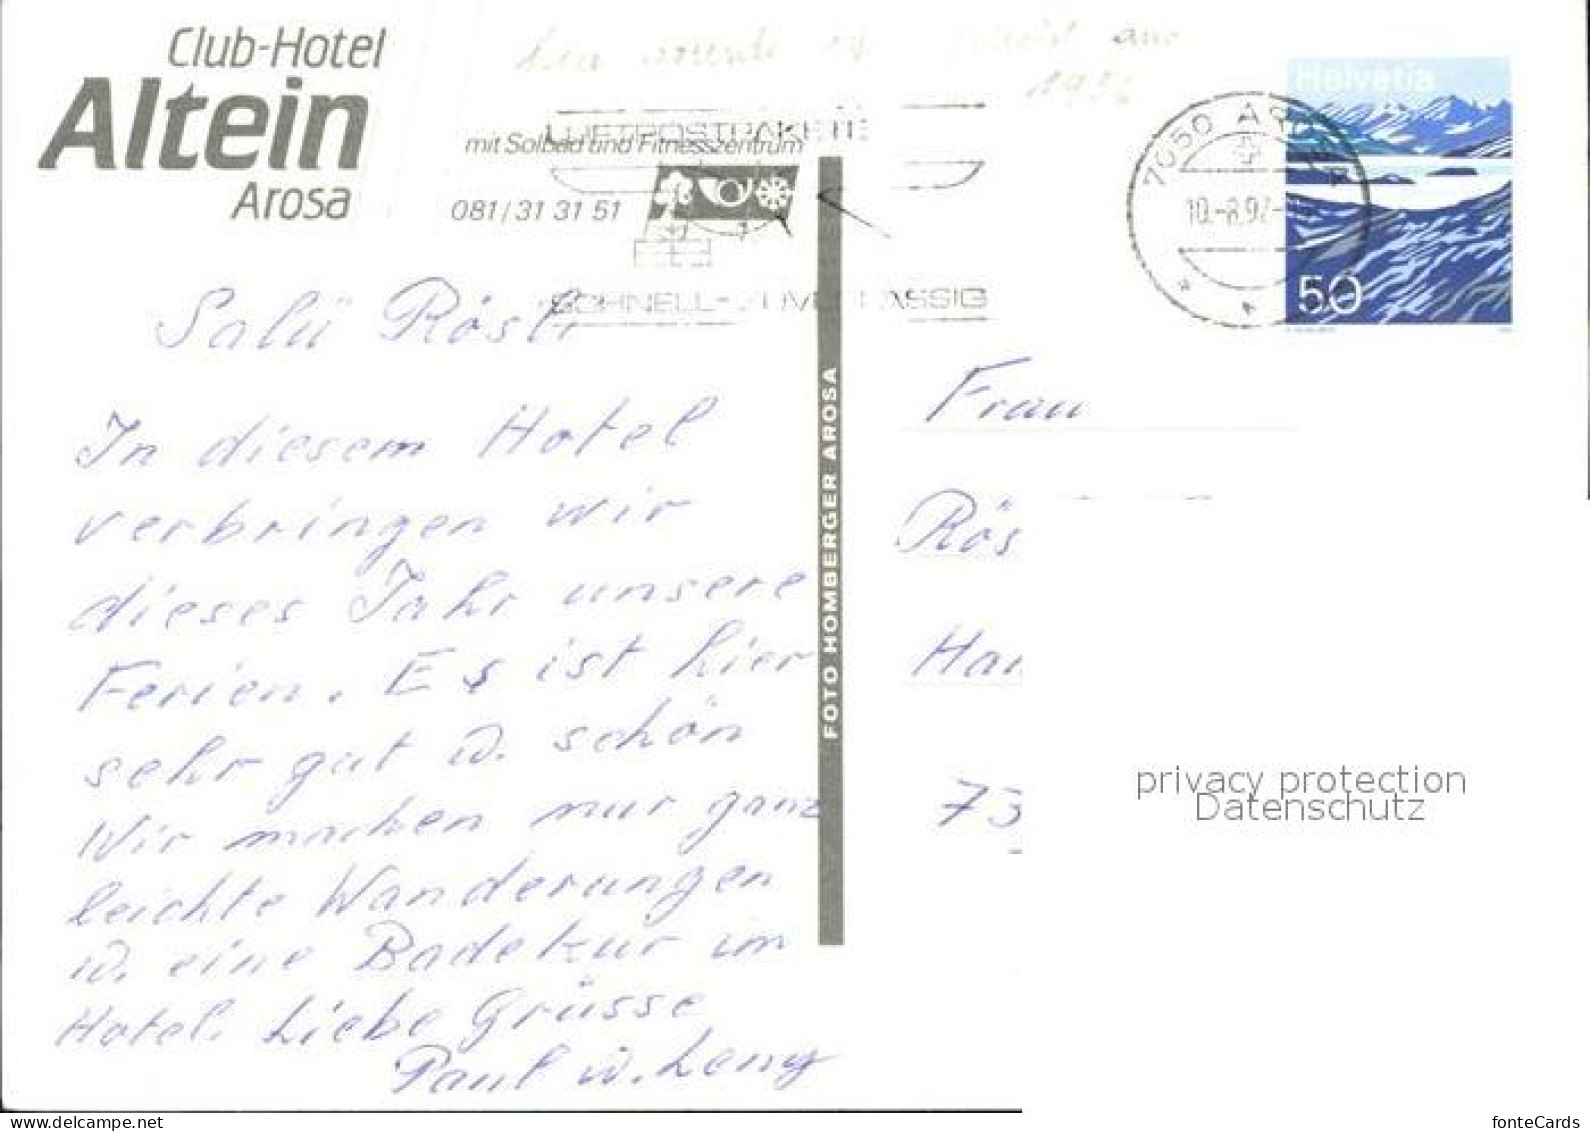 Club-Hotel
Altein
Arosa
mit Solbad und Fitnesszentrum
081/31 31 51
LUFTPOSTPAKETE
SCHNELL-ZUVERLÄSSIG
7050 AROSA
10.-8.92
Helvetia
50
Salü Rösli
In diesem Hotel
verbringen wir
dieses Jahr unsere
Ferien. Es ist hier
sehr gut u. schön
Wir machen nur ganz
leichte Wanderungen
u. eine Badekur im
Hotel. Liebe Grüsse
Paul u. Leny
FOTO HOMBERGER AROSA
Frau
Rös
Ha
73
privacy protection
Datenschutz
delcampe.net
fonteCards